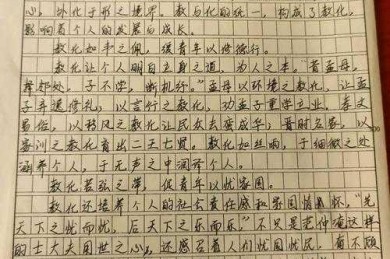 心，外化于形之境界。教与化的统一，构成了教化，
影响着个人的发展与成长。
教化如手之佩，缓青年以修德行。
教化让个人明自立身之道，为人之本。"昔孟母，
择邻处。子不学，断机杼。"孟母以环境之教化，让孟
子弃退修礼，以言行之教化，劝孟子重学立业。春文
易俗，以移风之教化让民众去蛮成华；晋时名家，以
家训之教化育出二王七贤。教化如丝响，于细微之处
涵养个人，于无声之中润泽个人。
教化若弦之弹，促青年以忧家国。
教化还培养个人的社会责任感和家国情怀，"先
天下之忧而忧，后天下之乐而乐。"不只是范仲淹这样
的士大夫用世之心，还感召着人们忧国忧民，有不顾